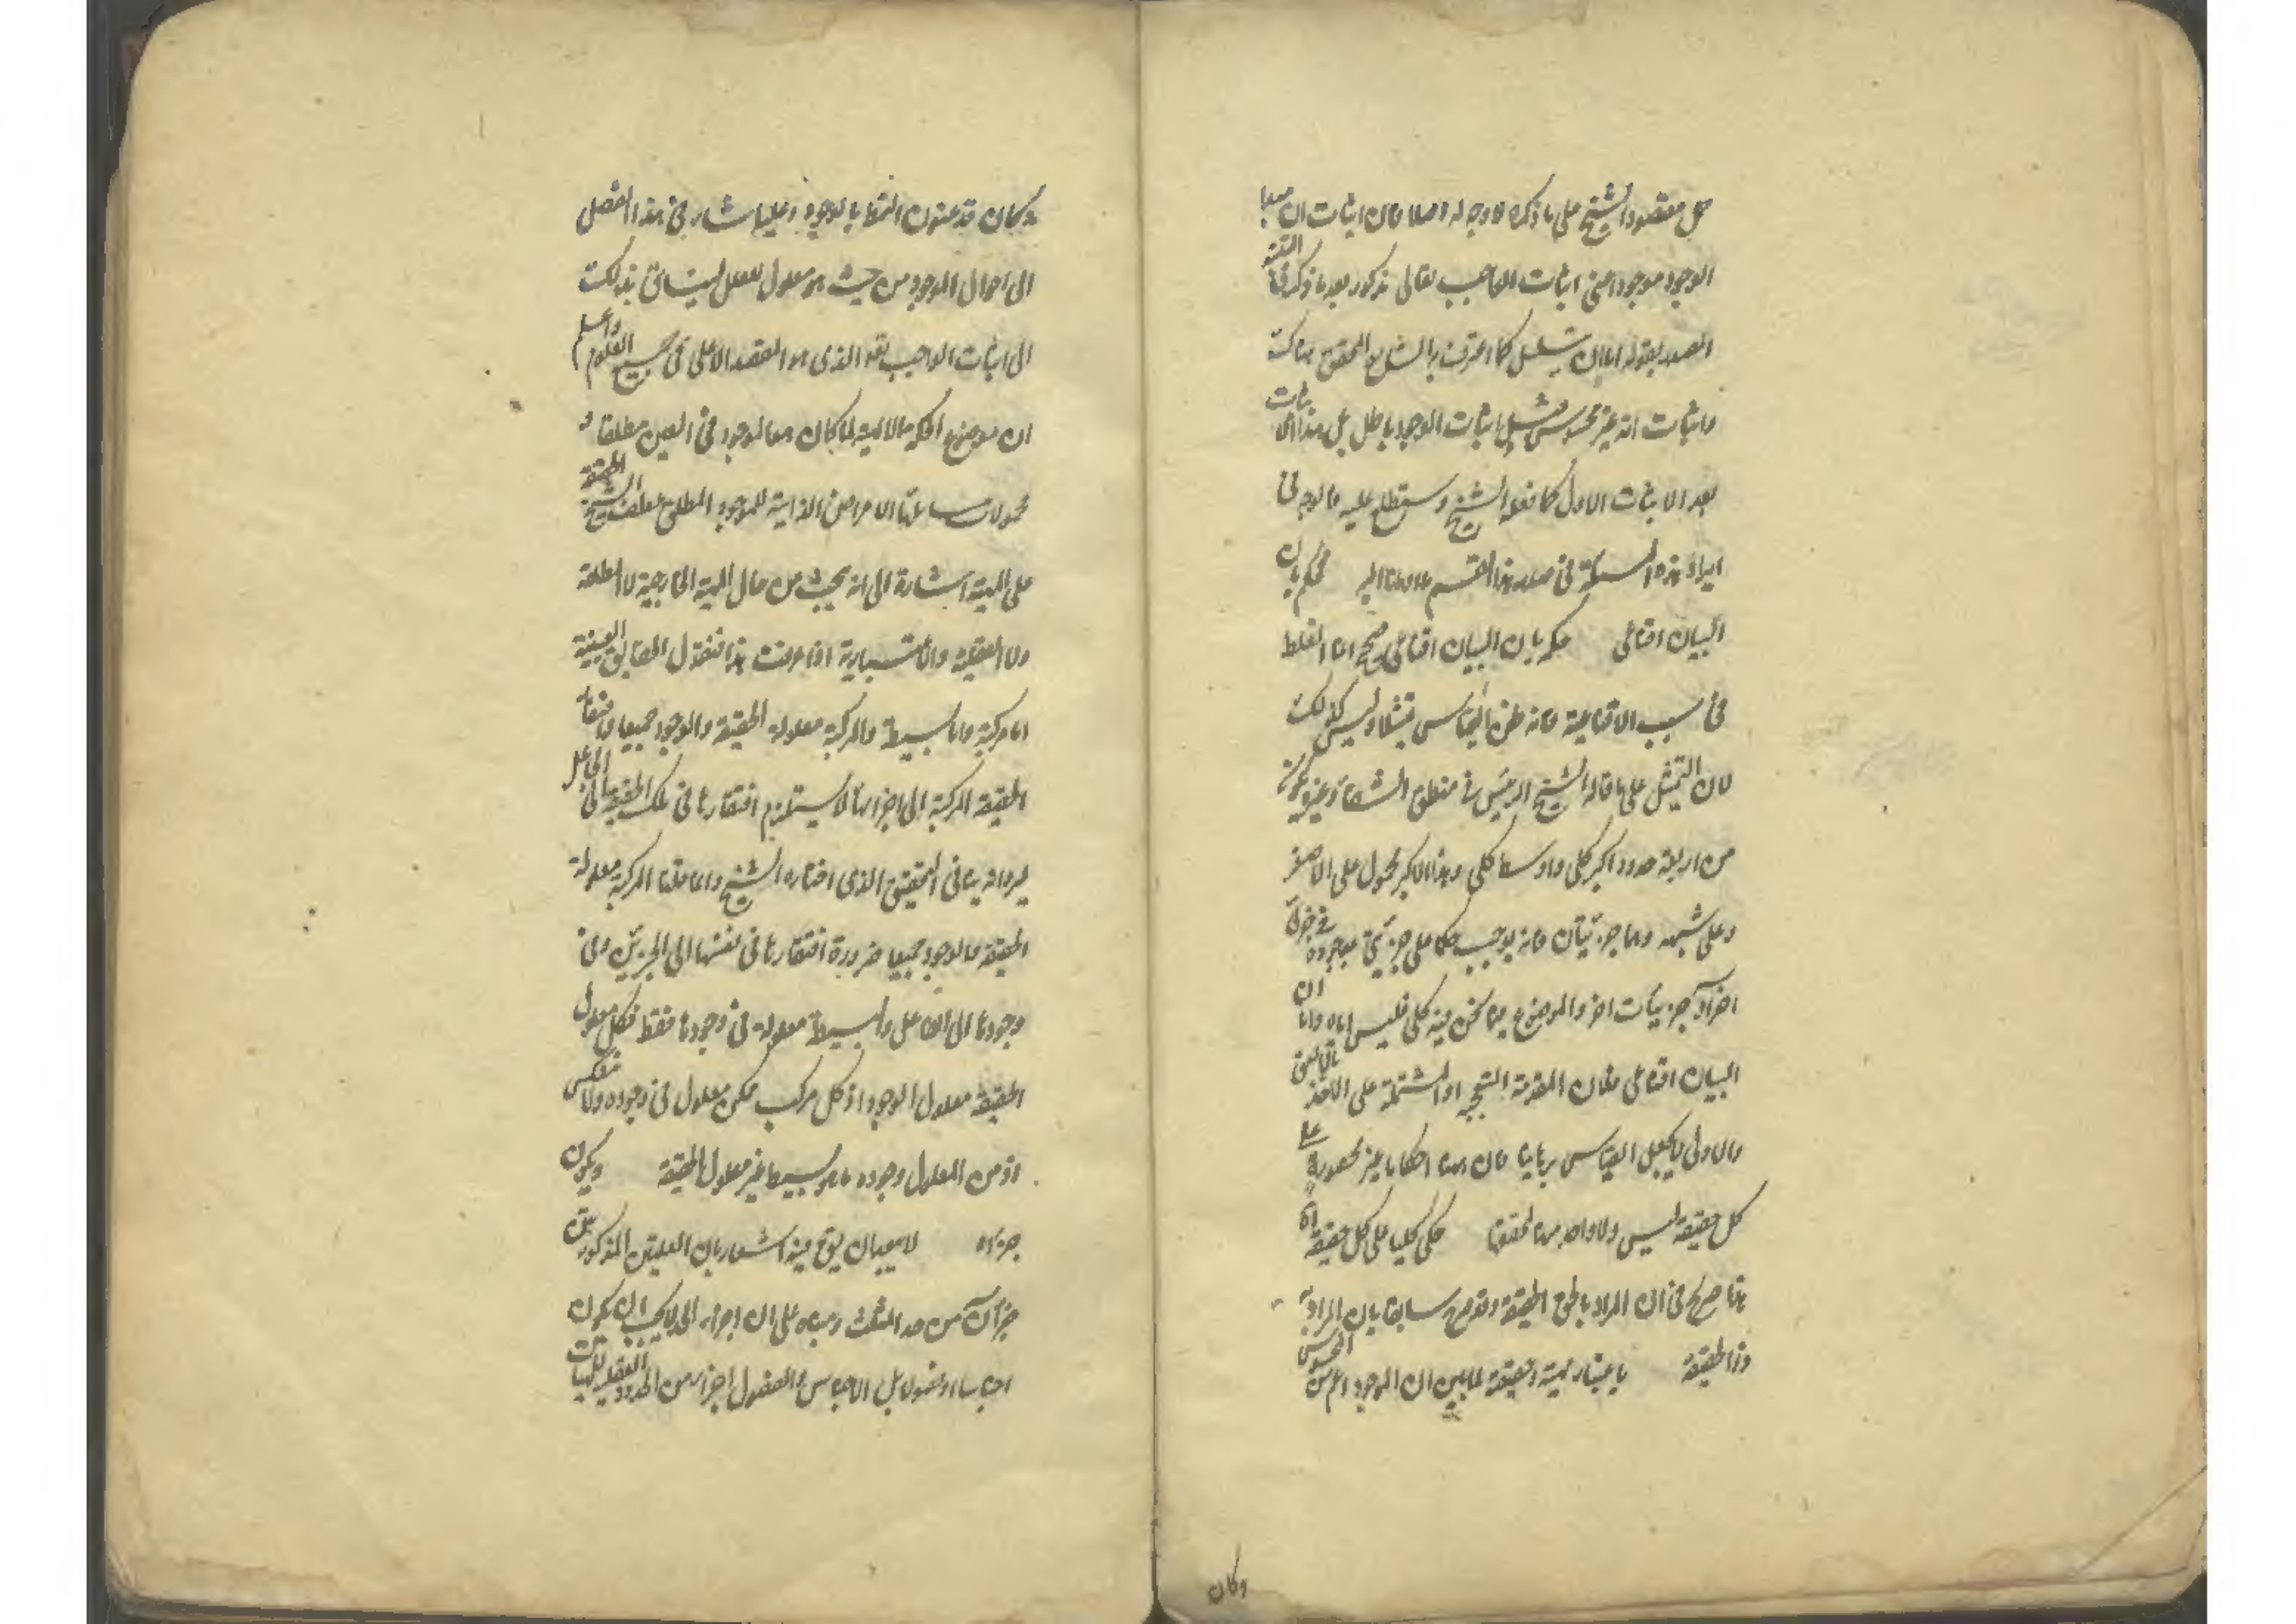 حمل مقصود الشيخ على ما ذكره لا وجه له اصلا فان اثبات ان
الوجود موجودا اعنى اثبات الواجب تعالى مذكور بعد ما ذكر فى
المصدر بقوله اما ان يتسلسل كما اعترف به الشارح المحقق هناك
واثبات انه غير محسوس قبل اثبات الوجود باطل بل هذا
بعد الاثبات الاول كما فعله الشيخ وستطلع عليه فالوجه فى
ايراد هذه المسئلة فى صدر هذا القسم ما اومأنا اليه فحكم بان
البيان اقناعى حكمه بان البيان اقناعى صحيح انما الغلط
فى سبب الاقناعية فانه ظن القياس تمثيلا وليس كذلك
لان التمثيل على ما قاله الشيخ الرئيس فى منطق الشفاء وغيره
من اربعة حدود اكبر كلى واوسط كلى وهذا الاكبر محمول على الاصغر
وعلى شبهه وهما جزئيان فانه يوجب حكما على جزئى
اخر او جزئيات اخر والموضوع فيما نحن فيه كلى فليس اياه واما ان
البيان اقناعى فلان المقدمة التجربية او المشتملة على الاخذ
بالاولى لا يجعل القياس برهانيا فان هذه احكاما غير محصورة
كل حقيقة ليس ولا واحد منها حكم كليا على كل حقيقة
هذا صريح فى ان المراد بالحق الحقيقة وقد صرح سابقا بان المراد به
ذو الحقيقة باعتبار مهية وحقيقة لما بين ان الموجود اعم من المحسوس
وكان
وكان قد عنون النمط بالوجود وعليها اشار فى هذا الفصل
الى احوال الموجود من حيث هو معلول للعلل لينساق بذلك
الى اثبات الواجب تعه الذى هو المقصد الاعلى فى جميع العلوم واعلم
ان موضوع الحكمة الالهية لما كان هو الموجود فى العين مطلقا و
محمولات مسائلها الاعراض الذاتية للموجود المطلق عطف الشيخ الحقيقة
على المهية اشارة الى انه يبحث من حال المهية الخارجية لا المطلقة
ولا العقلية والاعتبارية اذا عرفت هذا فنقول الحقايق العينية
اما مركبة واما بسيطة والمركبة معلولة الحقيقة والوجود جميعا وافتقار
الحقيقة المركبة الى اجزائها لا يستلزم افتقارها فى تلك الحقيقة الى الجاعل
ليرد انه ينافى التحقيق الذى اختاره الشيخ وانما قلنا المركبة معلولة
الحقيقة والوجود جميعا ضرورة افتقارها فى نفسها الى الجزئين وفى
وجودها الى الفاعل والبسيطة معلولة فى وجودها فقط فكل معلول
الحقيقة معلول الوجود اذ كل مركب ممكن معلول فى وجوده ولا عكس
اذ من المعلول وجوده ما هو بسيط غير معلول الحقيقة ويكون
جزءاه لا يبعد ان يق فيه اشعار بان العلتين المذكورتين
جزآن من حد المثلث ومبناه على ان اجزاء الحد لا يجب ان يكون
اجناسا او فصولا بل الاجناس والفصول اجزاء من الحدود